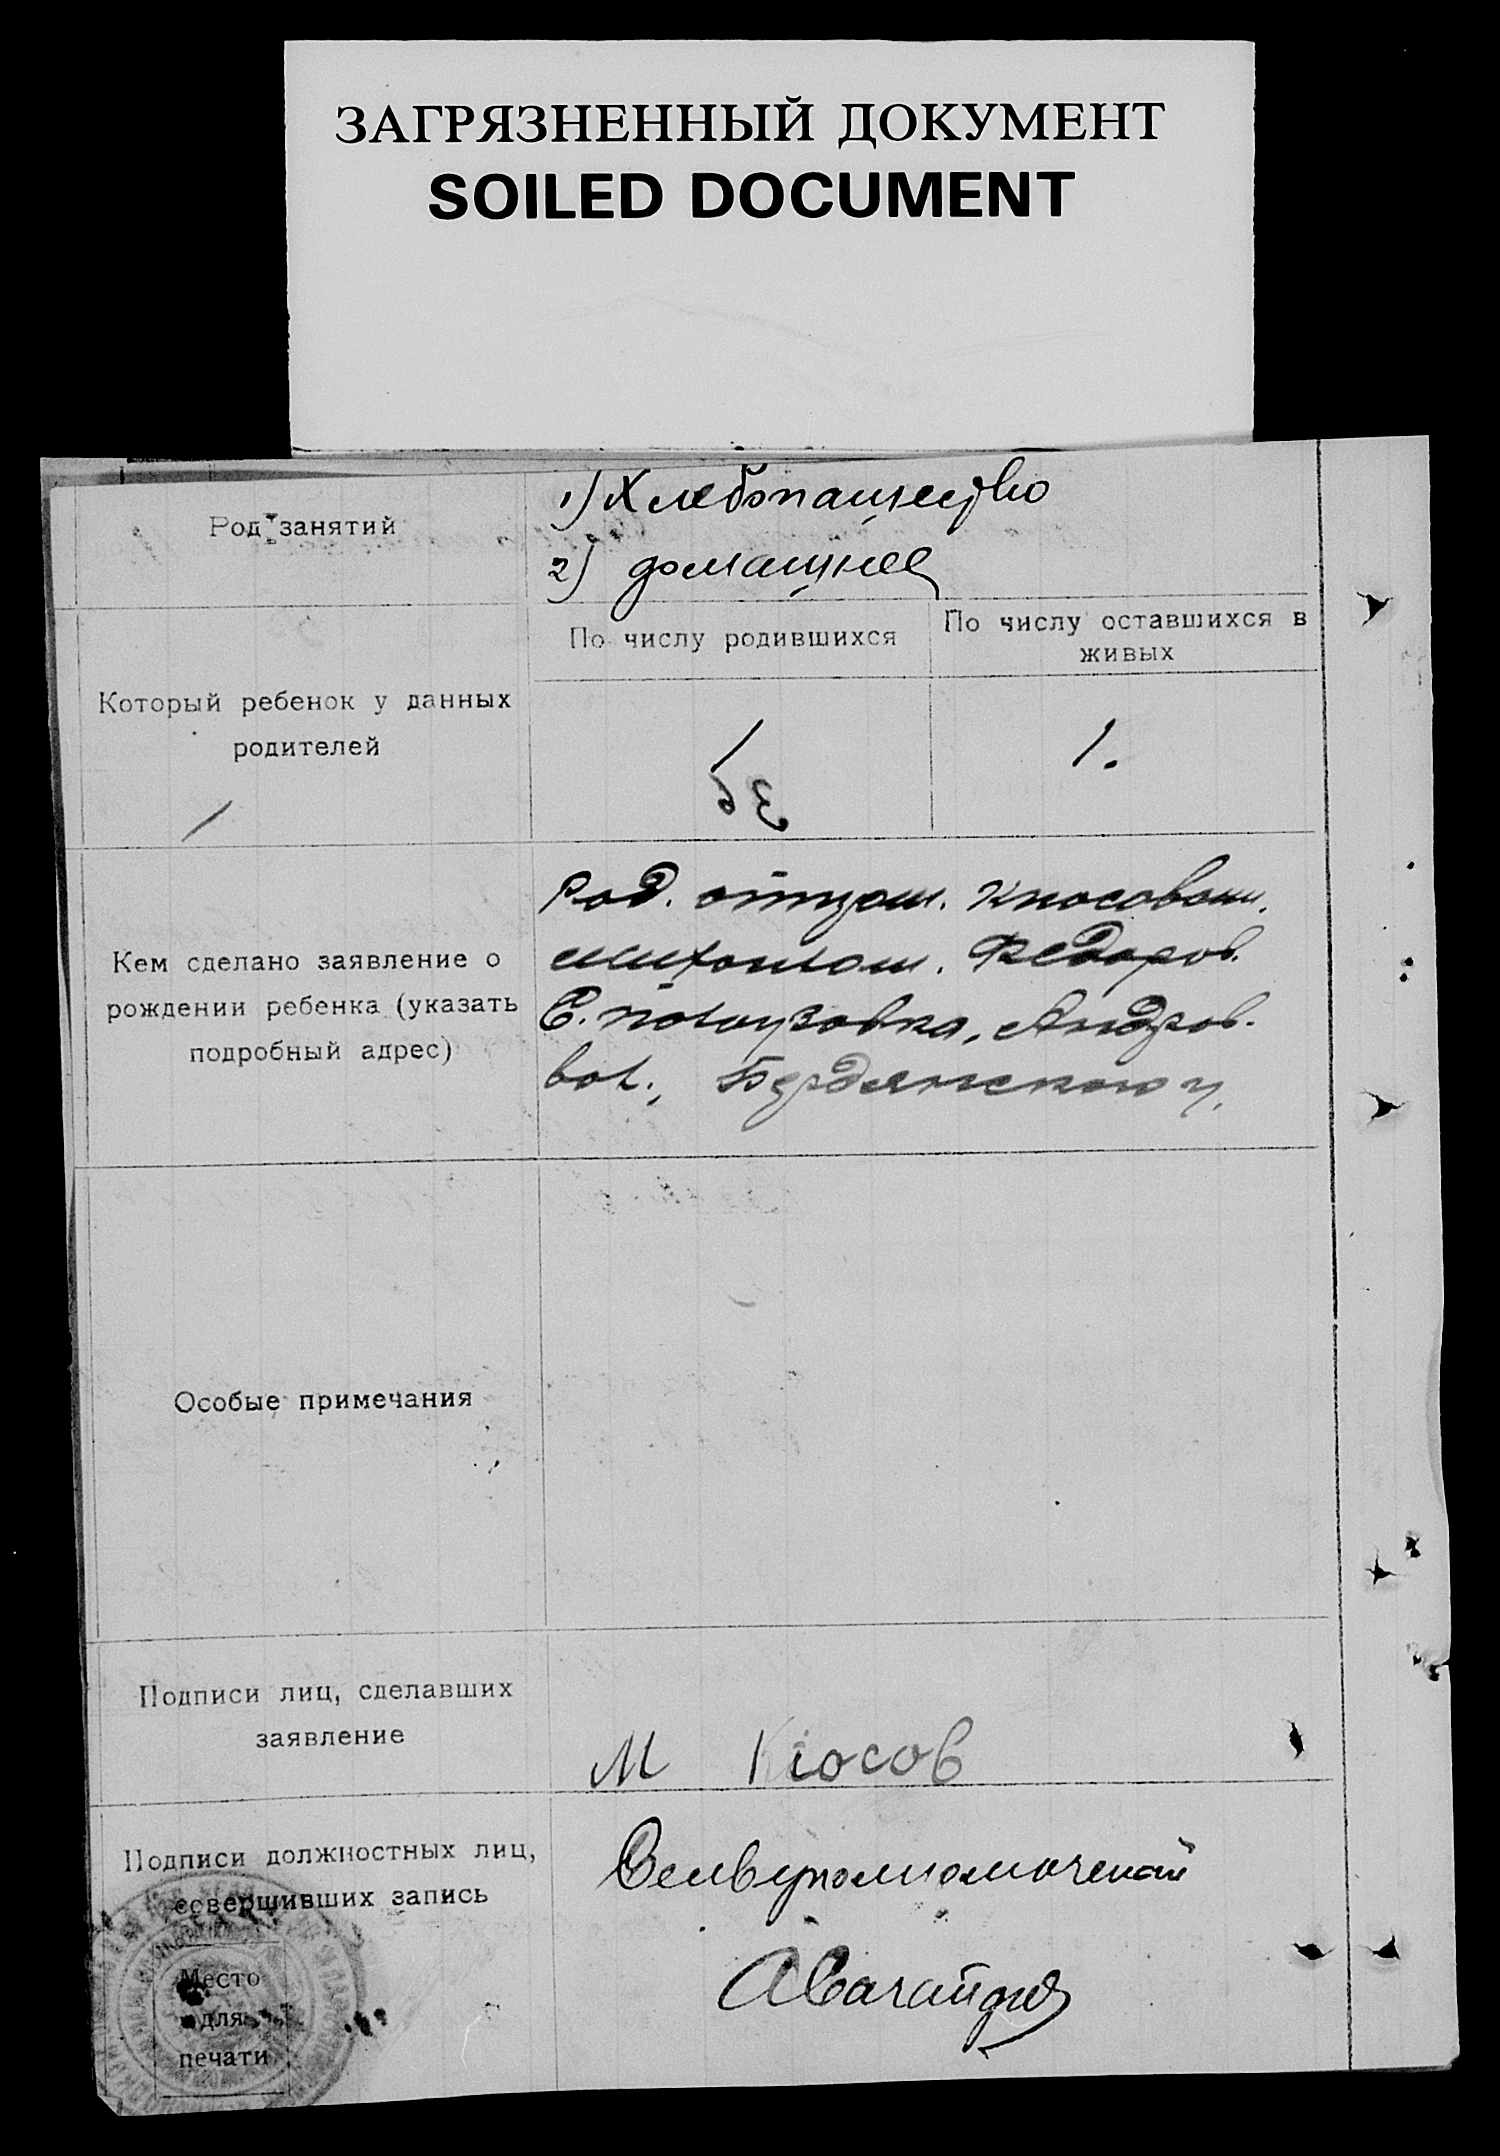 ЗАГРЯЗНЕННЫЙ ДОКУМЕНТ
SOILED DOCUMENT
Род занятий
1) Хлебопащество
2) домащнее
Который ребенок у данных
родителей
По числу родившихся
По числу оставшихся в
живых
1.
Кем сделано заявление о
рождении ребенка (указать
подробный адрес)
Род. отцом. Кносовом.
михаилом. Федоров.
Андров.
вол., Бердянского у.
Особые примечания
Подписи лиц, сделавших
заявление
М Кіосов
Подписи должностных лиц,
совершивших запись
Селвуполномоченой
Место
для
печати